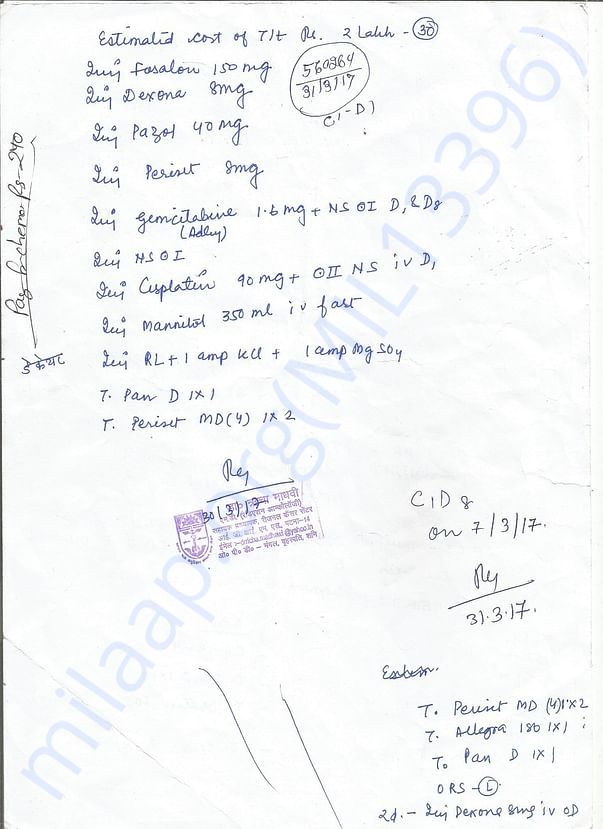 Estimated cost of T/t Rs. 2 Lakh - 30
Inj Fosalon 150 mg
Inj Dexona 8mg
560264
31/3/17
C1-D1
Inj Pazol 40 mg
Inj Periset 8mg
Inj Gemcitabine 1.6 mg + NS OI D1 & D8
(Adley)
Inj NS OI
Inj Cisplatin 90 mg + OII NS iv D1
Inj Mannitol 350 ml iv fast
Inj RL + 1 amp KCl + 1 amp MgSO4
T. Pan D 1x1
T. Periset MD (4) 1x2
डे केयर
30/3/17
C1D8
on 7/3/17.
31.3.17.
T. Periset MD (4) 1x2
T. Allegra 180 1x1
T. Pan D 1x1
ORS - L
2d. - Inj Dexona 8mg iv OD
milaap.org(MIL13396)